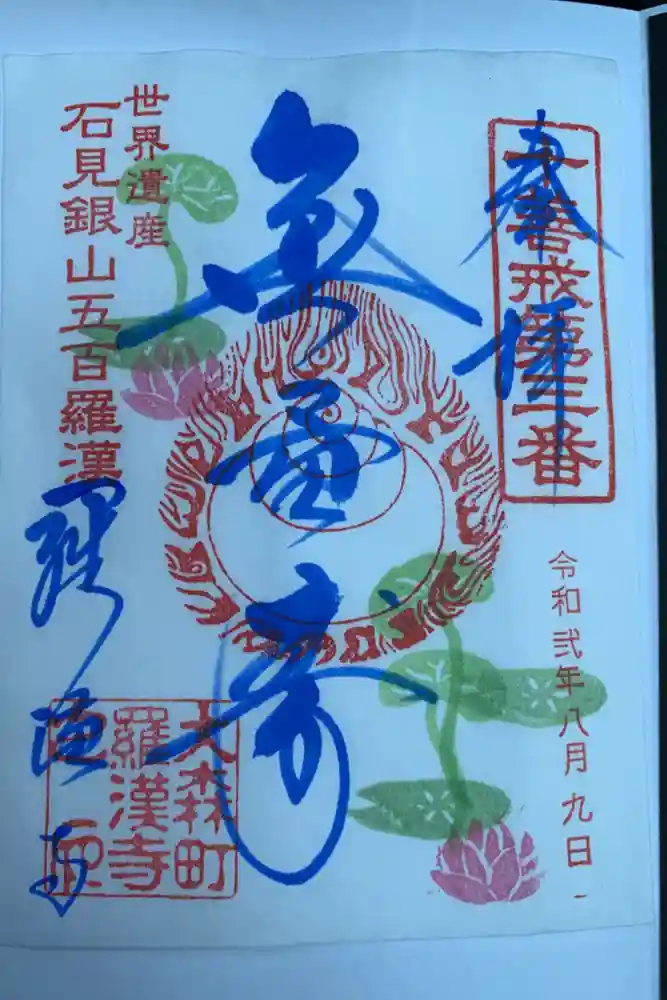 奉拝
十善戒第三番
令和弐年八月九日
無量寿
世界遺産
石見銀山五百羅漢
羅漢寺
大森町
羅漢寺